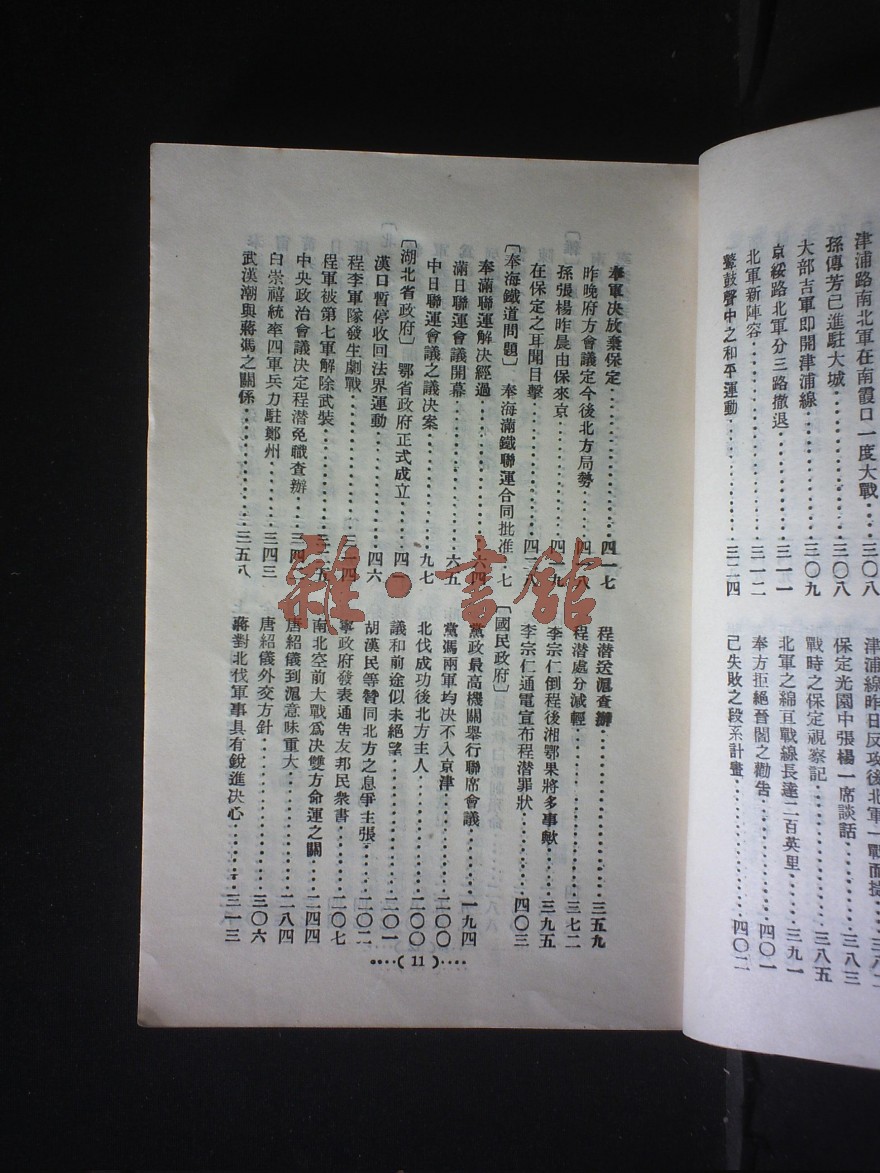 津浦路南北軍在南霞口一度大戰····三〇八
孫傳芳已進駐大城·········三〇八
大部吉軍即開津浦線········三〇九
京綏路北軍分三路撤退·······三一一
北軍新陣容············三一二
鼙鼓聲中之和平運動········三二四
津浦線昨日反攻後北軍一戰而捷
保定光園中張楊一席談話······三八三
戰時之保定視察記·········三八五
北軍之綿亙戰線長達二百英里····三九一
奉方拒絕晉閻之勸告········四〇一
己失敗之段系計畫·········四〇二
奉軍決放棄保定··········四一七
昨晚府方會議定今後北方局勢····四一八
孫張楊昨晨由保來京········四一九
在保定之耳聞目擊·········四二八
〔奉海鐵道問題〕 奉海滿鐵聯運合同批准·七
奉滿聯運解決經過·········六四
滿日聯運會議開幕·········六五
中日聯運會議之議決案·······九七
〔湖北省政府〕 鄂省政府正式成立····四二
漢口暫停收回法界運動·······四六
程李軍隊發生劇戰·········三一四
程軍被第七軍解除武裝·······三一九
中央政治會議決定程潛免職查辦···三四二
白崇禧統率四軍兵力駐鄭州·····三四三
武漢潮與蔣馮之關係········三五八
程潛送滬查辦···········三五九
程潛處分減輕···········三七二
李宗仁倒程後湘鄂果將多事歟····三九五
李宗仁通電宣布程潛罪狀······四〇三
〔國民政府〕
黨政最高機關舉行聯席會議·····一九四
黨馮兩軍均決不入京津·······二〇〇
北伐成功後北方主人········二〇〇
議和前途似未絕望·········二〇一
胡漢民等贊同北方之息爭主張····二〇二
寧政府發表通告友邦民衆書·····二〇七
南北空前大戰爲決雙方命運之關···二四四
唐紹儀到滬意味重大········二八四
唐紹儀外交方針··········三〇六
蔣對北伐軍事具有銳進決心·····三一三
····( 11 )····
雜·書館